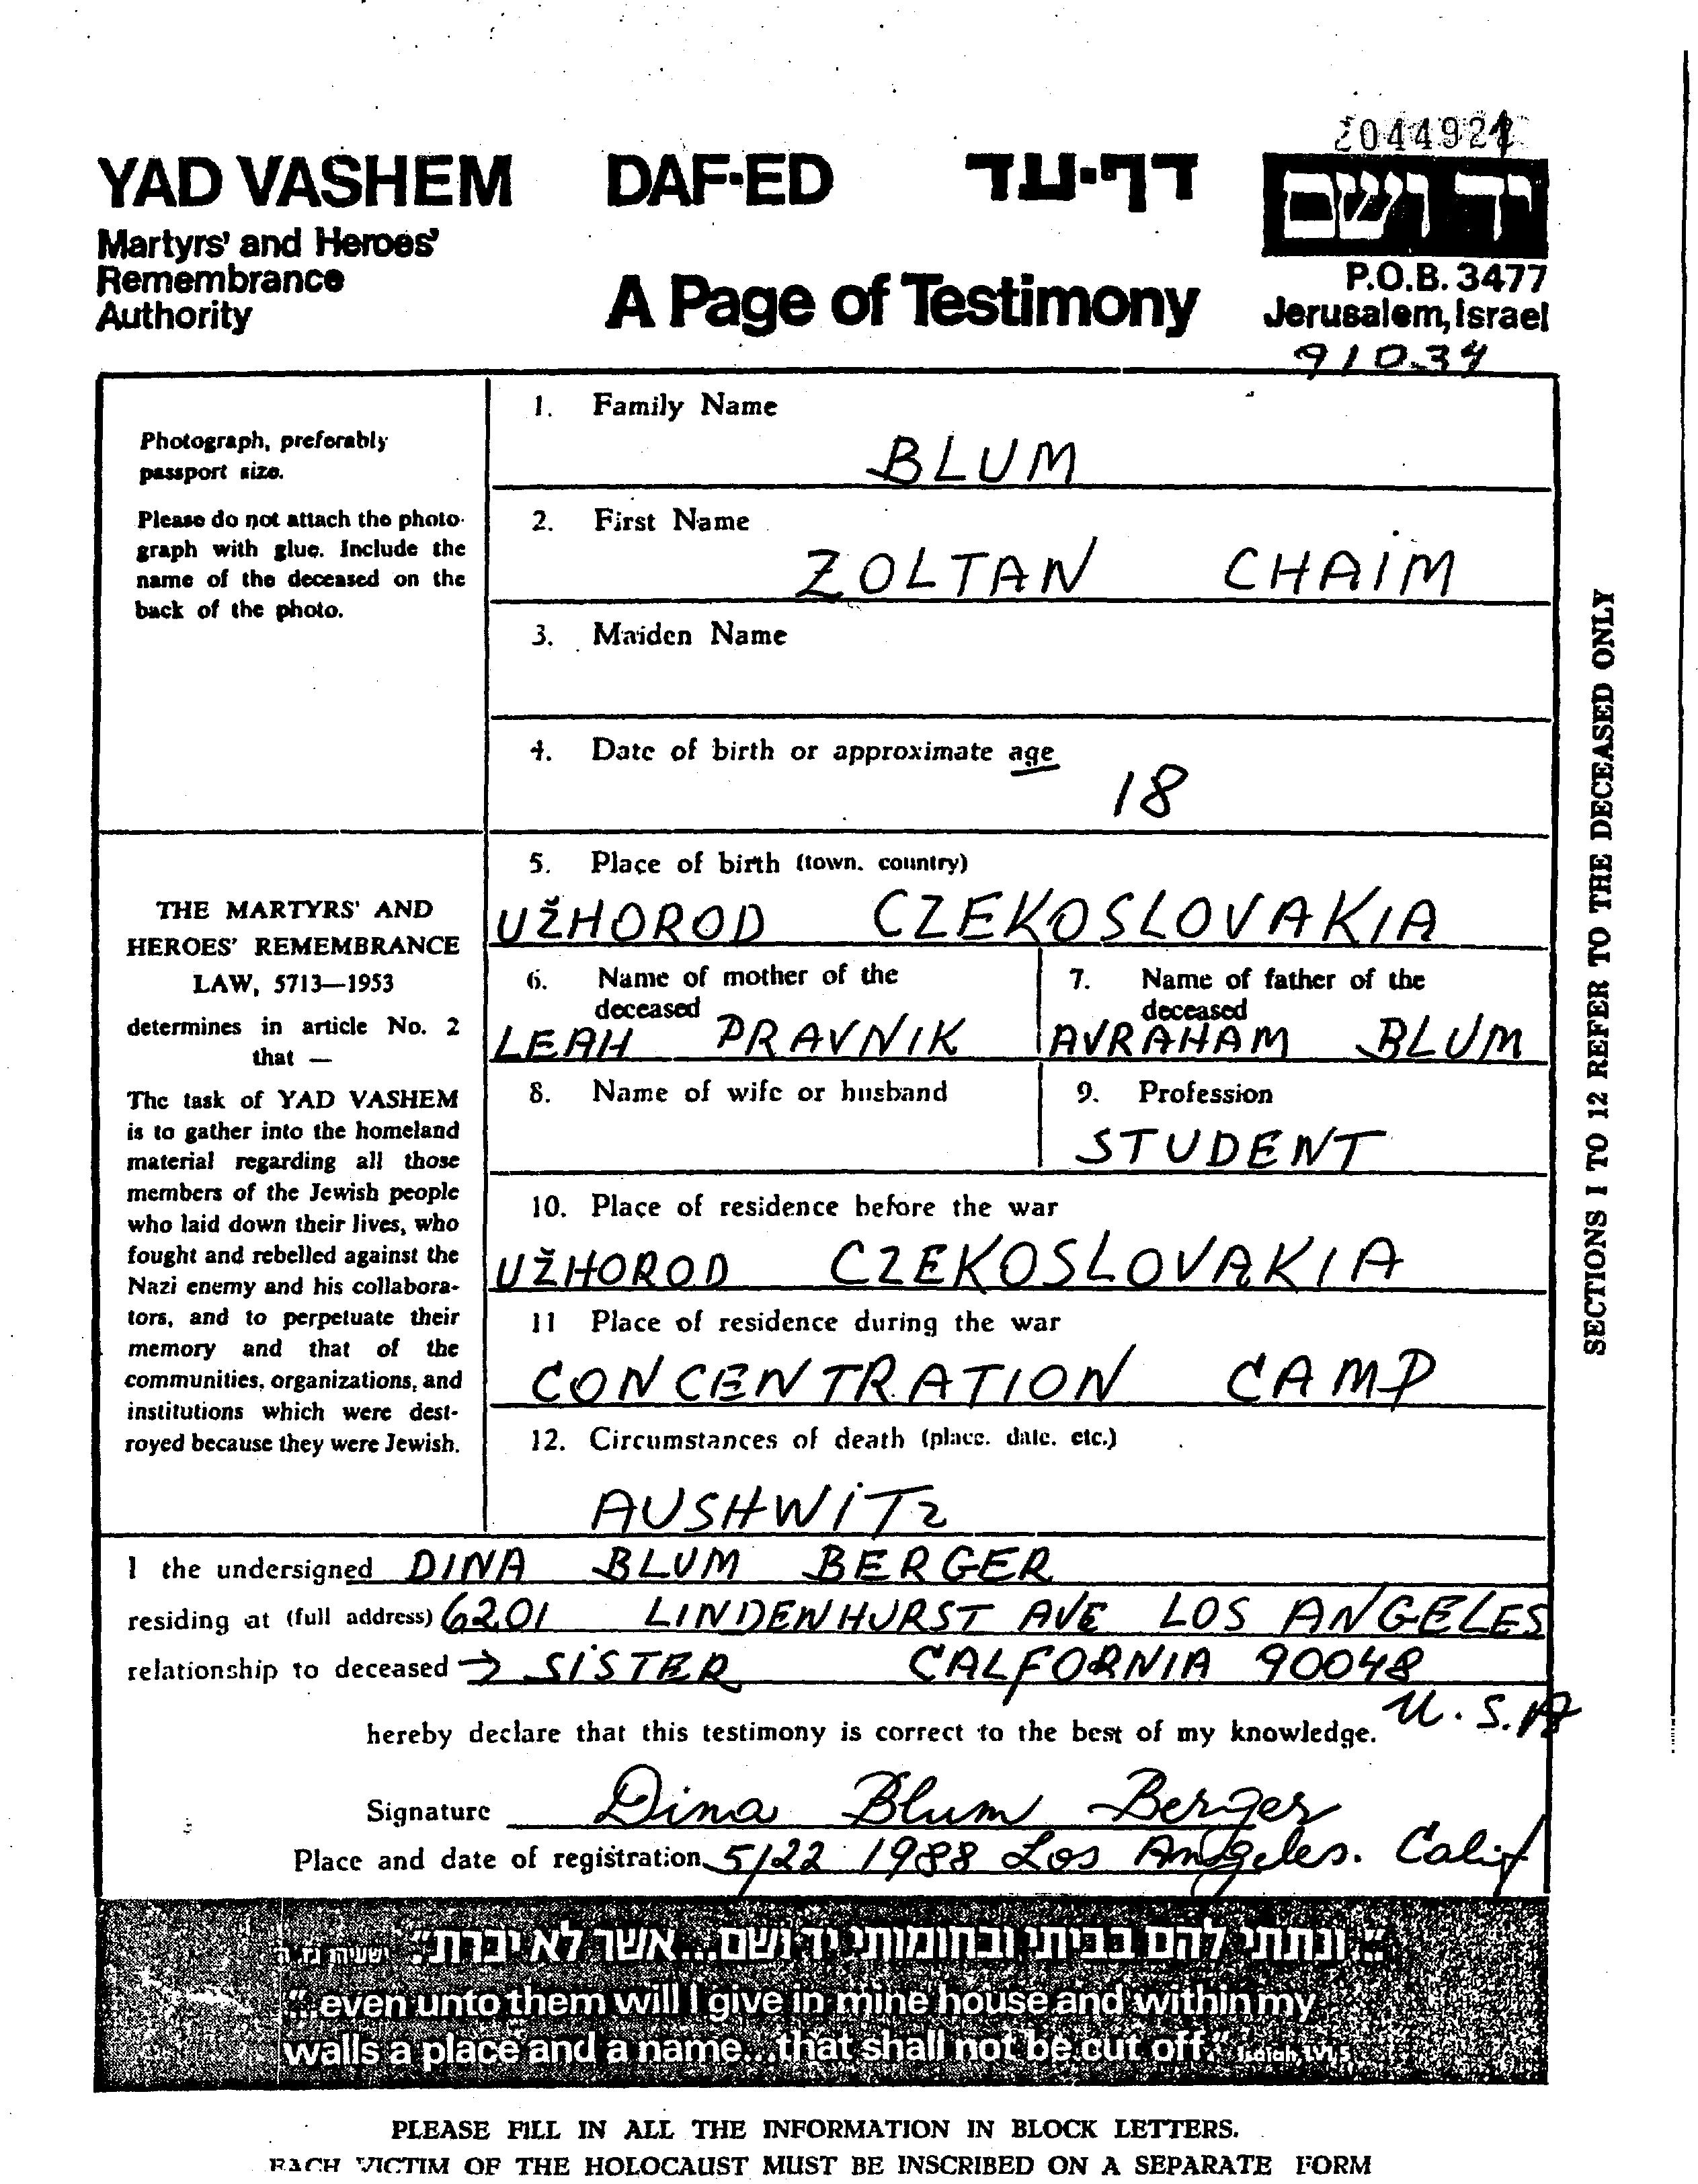 YAD VASHEM DAF-ED דף-עד
204492
יד ושם
Martyrs' and Heroes'
Remembrance
Authority
A Page of Testimony
P.O.B. 3477
Jerusalem, Israel
91034
Photograph, preferably
passport size.
Please do not attach the photo-
graph with glue. Include the
name of the deceased on the
back of the photo.
THE MARTYRS' AND
HEROES' REMEMBRANCE
LAW, 5713—1953
determines in article No. 2
that —
The task of YAD VASHEM
is to gather into the homeland
material regarding all those
members of the Jewish people
who laid down their lives, who
fought and rebelled against the
Nazi enemy and his collabora-
tors, and to perpetuate their
memory and that of the
communities, organizations, and
institutions which were dest-
royed because they were Jewish.
1. Family Name
BLUM
2. First Name
ZOLTAN CHAIM
3. Maiden Name
4. Date of birth or approximate age
18
5. Place of birth (town, country)
UŽHOROD CZEKOSLOVAKIA
6. Name of mother of the
deceased
LEAH PRAVNIK
7. Name of father of the
deceased
AVRAHAM BLUM
8. Name of wife or husband
9. Profession
STUDENT
10. Place of residence before the war
UŽHOROD CZEKOSLOVAKIA
11 Place of residence during the war
CONCENTRATION CAMP
12. Circumstances of death (place, date, etc.)
AUSHWITZ
SECTIONS 1 TO 12 REFER TO THE DECEASED ONLY
I the undersigned DINA BLUM BERGER
residing at (full address) 6201 LINDENHURST AVE LOS ANGELES
relationship to deceased → SISTER CALFORNIA 90048
U.S.A
hereby declare that this testimony is correct to the best of my knowledge.
Signature Dina Blum Berger
Place and date of registration 5/22 1988 Los Angeles. Calif
"...ונתתי להם בביתי ובחומותי יד ושם...אשר לא יכרת" ישעיהו נו, ה
"...even unto them will I give in mine house and within my
walls a place and a name...that shall not be cut off." Isaiah, LVI, 5
PLEASE FILL IN ALL THE INFORMATION IN BLOCK LETTERS.
EACH VICTIM OF THE HOLOCAUST MUST BE INSCRIBED ON A SEPARATE FORM